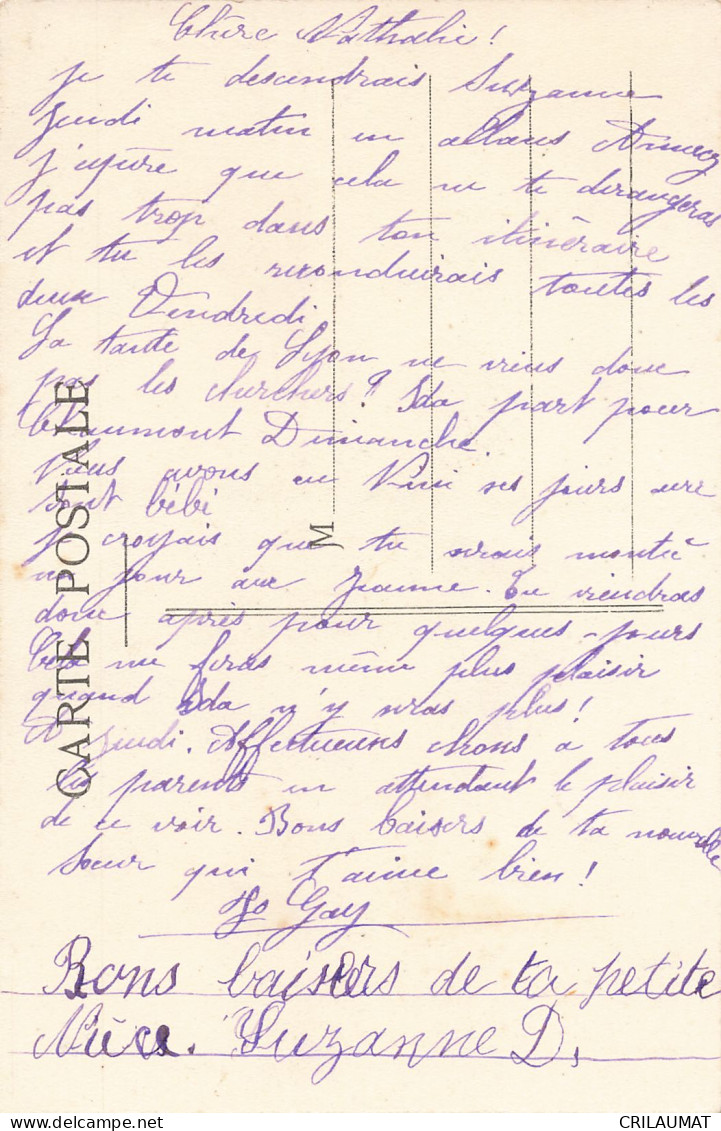 Chère Nathalie!
je te descendrais Suzanne
Jeudi matin en allans Annecy
j'espère que cela ne te derangeras
pas trop dans ton itinéraire
et tu les reconduirais toutes les
deux Vendredi
La tante de Lyon ne viens donc
pas les cherchers? Ida part pour
Chaumont Dimanche
Nous avons eu Nini ses jours avec
sont bébi
je croyais que tu serais montée
un jour aux Jeaume. Tu viendras
donc après pour quelques-jours
Cela me feras même plus plaisir
quand Ida n'y seras plus!
A jeudi. Affectueuses choses à tous
tes parents en attendant le plaisir
de ce voir. Bons baisers de ta nouvelle
Soeur qui t'aime bien!
Jo Gay
Bons baisers de ta petite
Nièce. Suzanne D.
CARTE POSTALE
M
CRILAUMAT